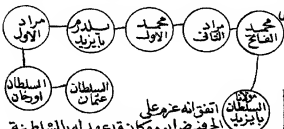 محمد الفاتح
مراد الثانى
محمد الاول
يلدرم بايزيد
مراد الاول
السلطان اورخان
السلطان عثمان
مولانا السلطان بايزيد
اتفق انه عزم على